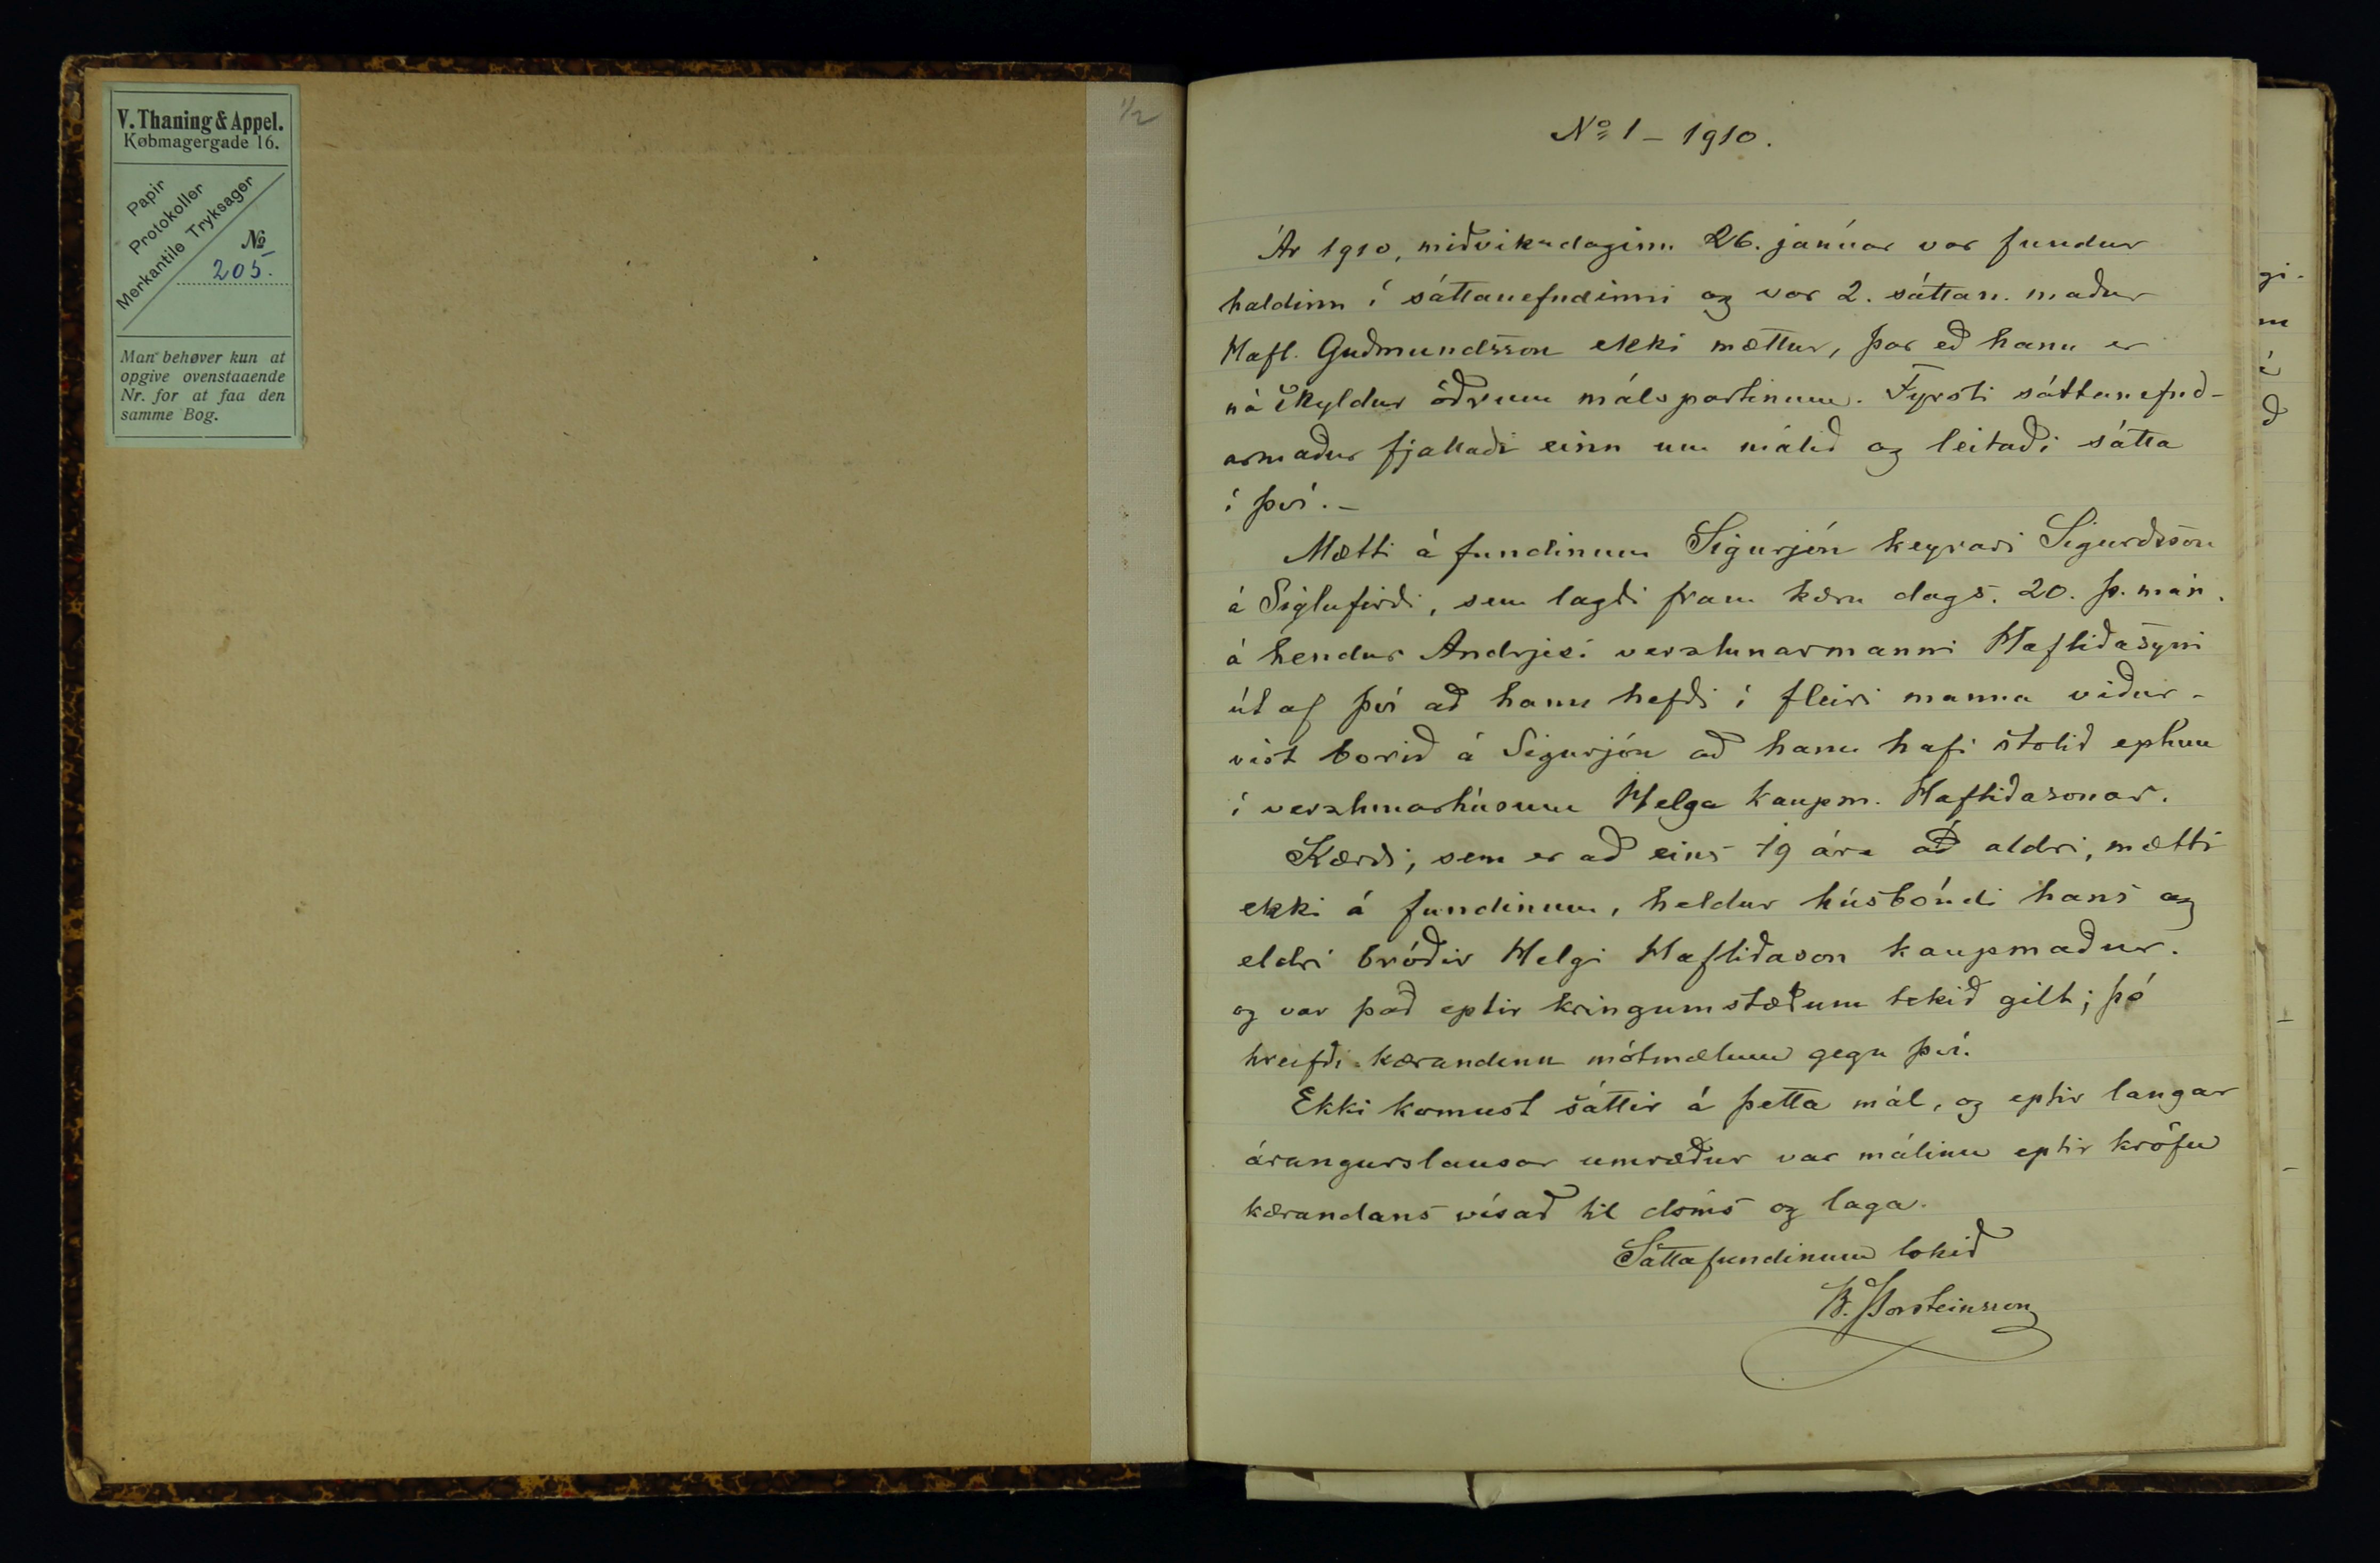 V. Thaning & Appel.
Købmagergade 16.
Papir
Protokoller
Merkantile Tryksager
No
205.
Man behøver kun at
opgive ovenstaaende
Nr. for at faa den
samme Bog.
1/2
No 1 – 1910.
Ár 1910, miðvikudaginn 26. janúar var fundur
haldinn í sáttanefndinni og var 2. sáttan. maður
Hafl. Guðmundsson ekki mættur, þar eð hann er
náskyldur öðrum málspartinum. Fyrsti sáttanefnd-
armaður fjallaði einn um málið og leitaði sátta
í því. –
Mætti á fundinum Sigurjón keyrari Sigurðsson
á Siglufirði, sem lagði fram kæru dags. 20. þ. mán.
á hendur Andrjesi verzlunarmanni Hafliðasyni
út af því að hann hefði í fleiri manna viður-
vist borið á Sigurjón að hann hafi stolið eplum
í verzlunarhúsum Helga kaupm. Hafliðasonar.
Kærði, sem er að eins 19 ára að aldri, mætti
ekki á fundinum, heldur húsbóndi hans og
eldri bróðir Helgi Hafliðason kaupmaður.
og var það eptir kringumstæðum tekið gilt; þó
hreifði kærandinn mótmælum gegn því.
Ekki komust sáttir á þetta mál, og eptir langar
árangurslausar umræður var málinu eptir kröfu
kærandans vísað til dóms og laga.
Sáttafundinum lokið
B. Þorsteinsson
gi-
m
í
ð